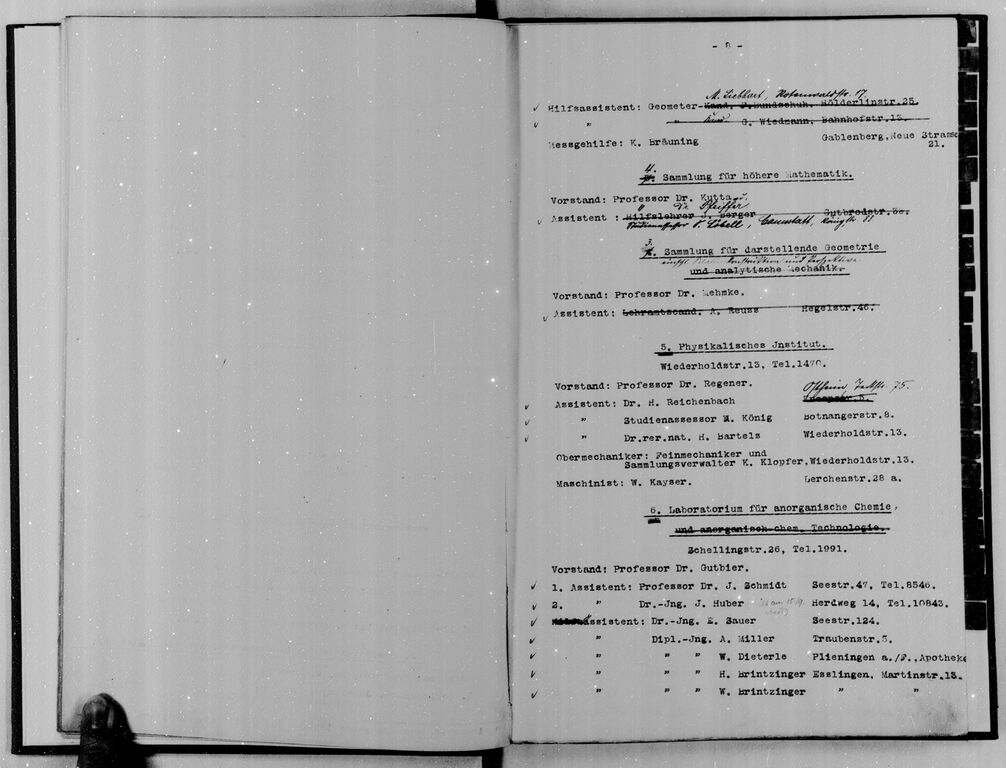 - 8 -
M. Liebhart, Rotenwaldstr. 17.
Hilfsassistent: Geometer-Kand. P. Bundschuh. Hölderlinstr.25.
" " G. Wiedmann. Bahnhofstr.13.
Messgehilfe: K. Bräuning Gablenberg, Neue Strasse
21.
4. Sammlung für höhere Mathematik.
Vorstand: Professor Dr. Kutta u.
" Dr. Pfeiffer
Assistent : Hilfslehrer Berger Gutbrodstr.
Studienassessor F. Löbell, Cannstatt, Königstr.
3. Sammlung für darstellende Geometrie
einschl. Konstruktion und Perspektive
und analytische Mechanik.
Vorstand: Professor Dr. Mehmke.
Assistent: Lehramtscand. A. Reuss Hegelstr.46.
5. Physikalisches Jnstitut.
Wiederholdstr.13, Tel.1470.
Vorstand: Professor Dr. Regener.
Ostheim, Teckstr. 75.
Assistent: Dr. H. Reichenbach
" Studienassessor M. König Botnangerstr.8.
" Dr.rer.nat. H. Bartels Wiederholdstr.13.
Obermechaniker: Feinmechaniker und
Sammlungsverwalter K. Klopfer, Wiederholdstr.13.
Maschinist: W. Kayser. Lerchenstr.28 a.
6. Laboratorium für anorganische Chemie,
und anorganisch-chem. Technologie.
Schellingstr.26, Tel.1991.
Vorstand: Professor Dr. Gutbier.
1. Assistent: Professor Dr. J. Schmidt Seestr.47, Tel.8546.
2. " Dr.-Jng. J. Huber Herdweg 14, Tel.10843.
assistent: Dr.-Jng. E. Sauer Seestr.124.
" Dipl.-Jng. A. Miller Traubenstr.5.
" " " W. Dieterle Plieningen a./F., Apotheke
" " " H. Brintzinger Esslingen, Martinstr.13.
" " " W. Brintzinger " "